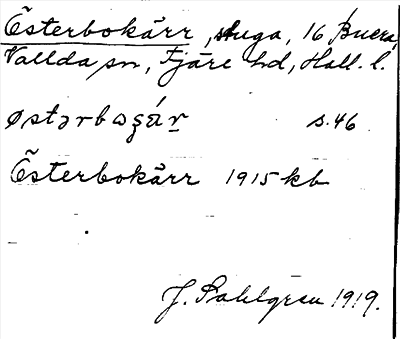 Österbokärr, stuga, 16 Buera,
Vallda sn, Fjäre hd, Hall. l.
østərbog̨ár s.46
Österbokärr 1915 kb
J. Sahlgren 1919.